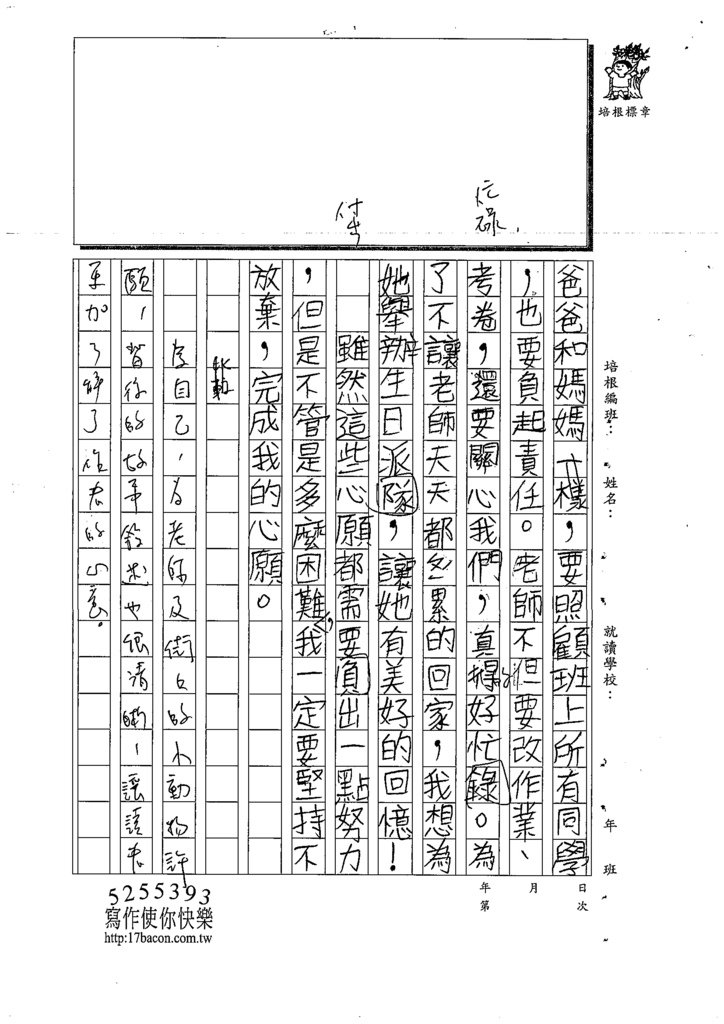 培根標章
忙碌
付出
爸爸和媽媽一樣,要照顧班上所有同學
,也要負起責任。老師不但要改作業、
考卷,還要關心我們,真得好忙錄。為
了不讓老師天天都多累的回家,我想為
她舉辦生日派隊,讓她有美好的回憶!
雖然這些心願都需要負出一點努力
,但是不管是多麼困難,我一定要堅持不
放棄,完成我的心願。
為自己、為老師及街上的小動物許
願,背後的故事敘述也很清晰,讓讀者
更加了解了作者的心意。
培根編班:
姓名:
就讀學校:
年 班
年 月 日
第 次
5255393
寫作使你快樂
http:17bacon.com.tw